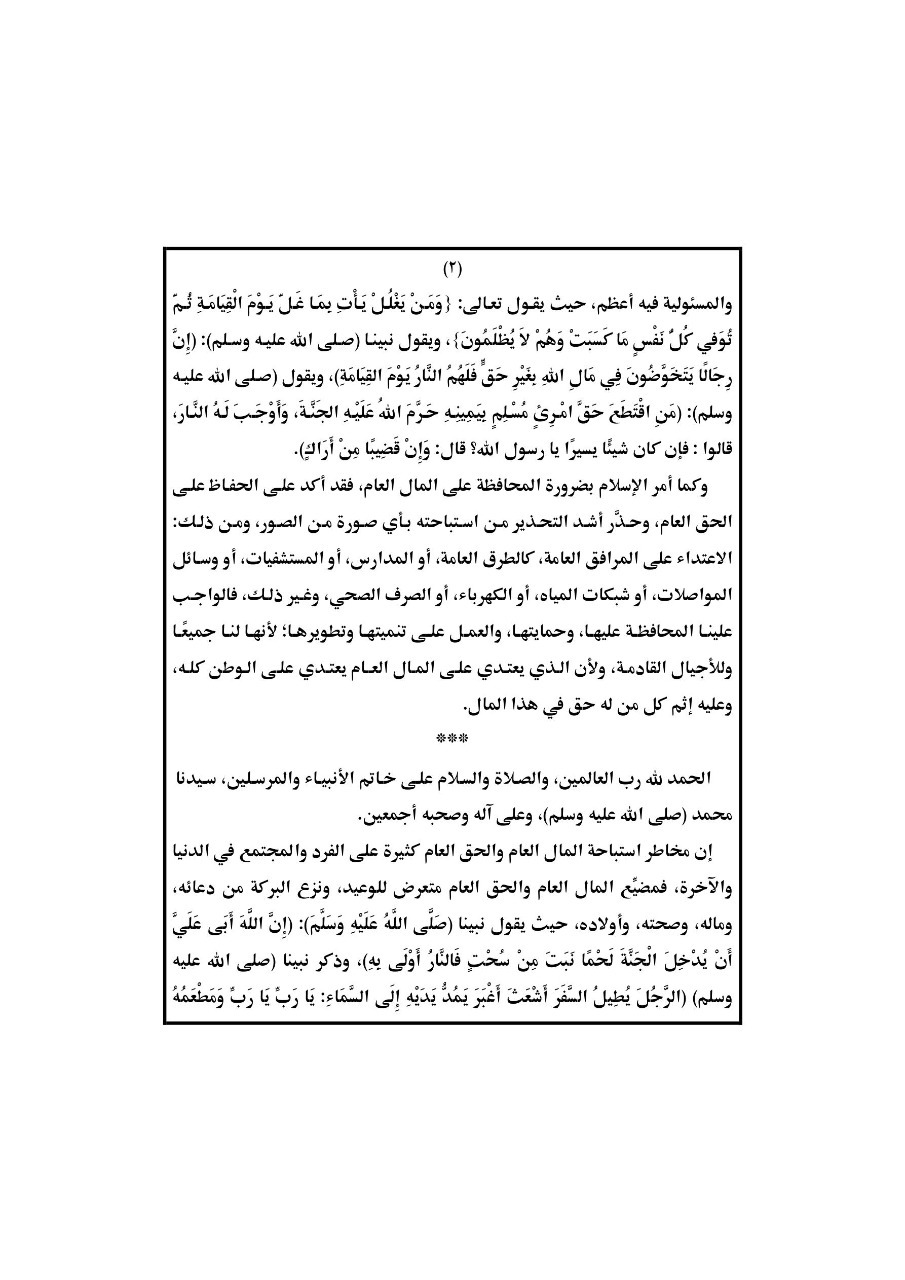 (٢)
والمسئولية فيه أعظم، حيث يقول تعالى: {وَمَنْ يَغْلُلْ يَأْتِ بِمَا غَلّ يَوْمَ الْقِيَامَةِ ثُمّ
تُوَفي كُلّ نَفْسٍ مَا كَسَبَتْ وَهُمْ لاَ يُظْلَمُونَ}، ويقول نبينا (صلى الله عليه وسلم): (إِنَّ
رِجَالًا يَتَخَوَّضُونَ فِي مَالِ اللهِ بِغَيْرِ حَقٍّ فَلَهُمُ النَّارُ يَوْمَ القِيَامَةِ)، ويقول (صلى الله عليه
وسلم): (مَنِ اقْتَطَعَ حَقَّ امْرِئٍ مُسْلِمٍ بِيَمِينِهِ حَرَّمَ اللهُ عَلَيْهِ الجَنَّةَ، وَأَوْجَبَ لَهُ النَّارَ،
قالوا : فإن كان شيئًا يسيرًا يا رسول الله؟ قال: وَإِنْ قَضِيبًا مِنْ أَرَاكٍ).
وكما أمر الإسلام بضرورة المحافظة على المال العام، فقد أكد على الحفاظ على
الحق العام، وحذَّر أشد التحذير من استباحته بأي صورة من الصور، ومن ذلك:
الاعتداء على المرافق العامة، كالطرق العامة، أو المدارس، أو المستشفيات، أو وسائل
المواصلات، أو شبكات المياه، أو الكهرباء، أو الصرف الصحي، وغير ذلك، فالواجب
علينا المحافظة عليها، وحمايتها، والعمل على تنميتها وتطويرها؛ لأنها لنا جميعًا
وللأجيال القادمة، ولأن الذي يعتدي على المال العام يعتدي على الوطن كله،
وعليه إثم كل من له حق في هذا المال.
***
الحمد لله رب العالمين، والصلاة والسلام على خاتم الأنبياء والمرسلين، سيدنا
محمد (صلى الله عليه وسلم)، وعلى آله وصحبه أجمعين.
إن مخاطر استباحة المال العام والحق العام كثيرة على الفرد والمجتمع في الدنيا
والآخرة، فمضيِّع المال العام والحق العام متعرض للوعيد، ونزع البركة من دعائه،
وماله، وصحته، وأولاده، حيث يقول نبينا (صَلَّى اللَّهُ عَلَيْهِ وَسَلَّمَ): (إِنَّ اللَّهَ أَبَى عَلَيَّ
أَنْ يُدْخِلَ الْجَنَّةَ لَحْمًا نَبَتَ مِنْ سُحْتٍ فَالنَّارُ أَوْلَى بِهِ)، وذكر نبينا (صلى الله عليه
وسلم) (الرَّجُلَ يُطِيلُ السَّفَرَ أَشْعَثَ أَغْبَرَ يَمُدُّ يَدَيْهِ إِلَى السَّمَاءِ: يَا رَبِّ يَا رَبِّ وَمَطْعَمُهُ